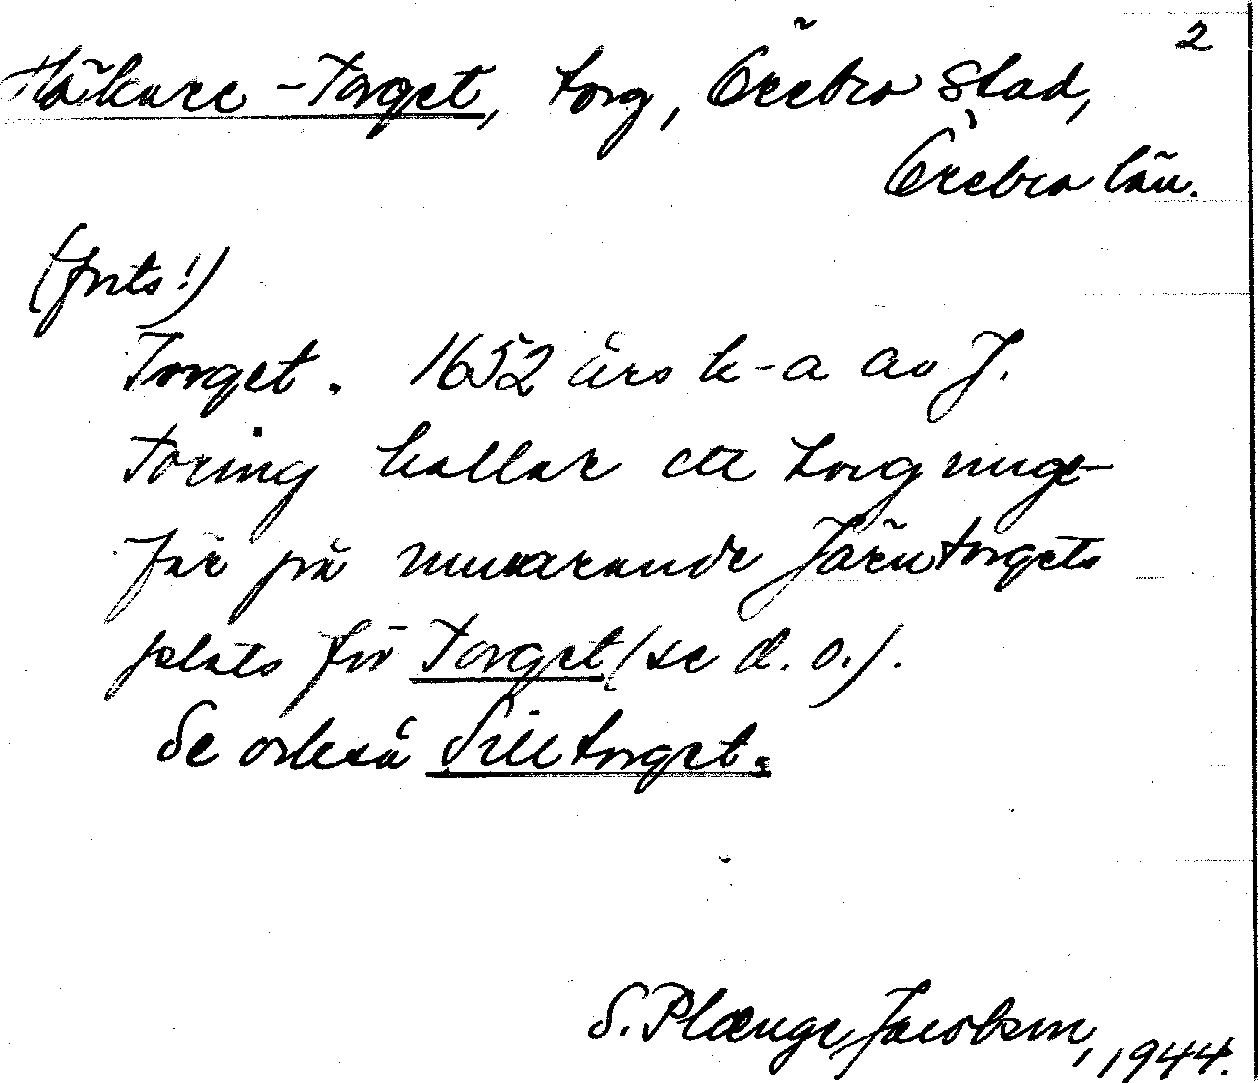 2
Häkare-Torget, torg, Örebro stad,
Örebro län.
(forts!)
Torget. 1652 års k-a av J.
Toring kallar ett torg unge-
fär på nuvarande Järntorgets
plats för Torget (se d.o.).
Se också Silltorget.
S. Plænge Jacobson, 1944.